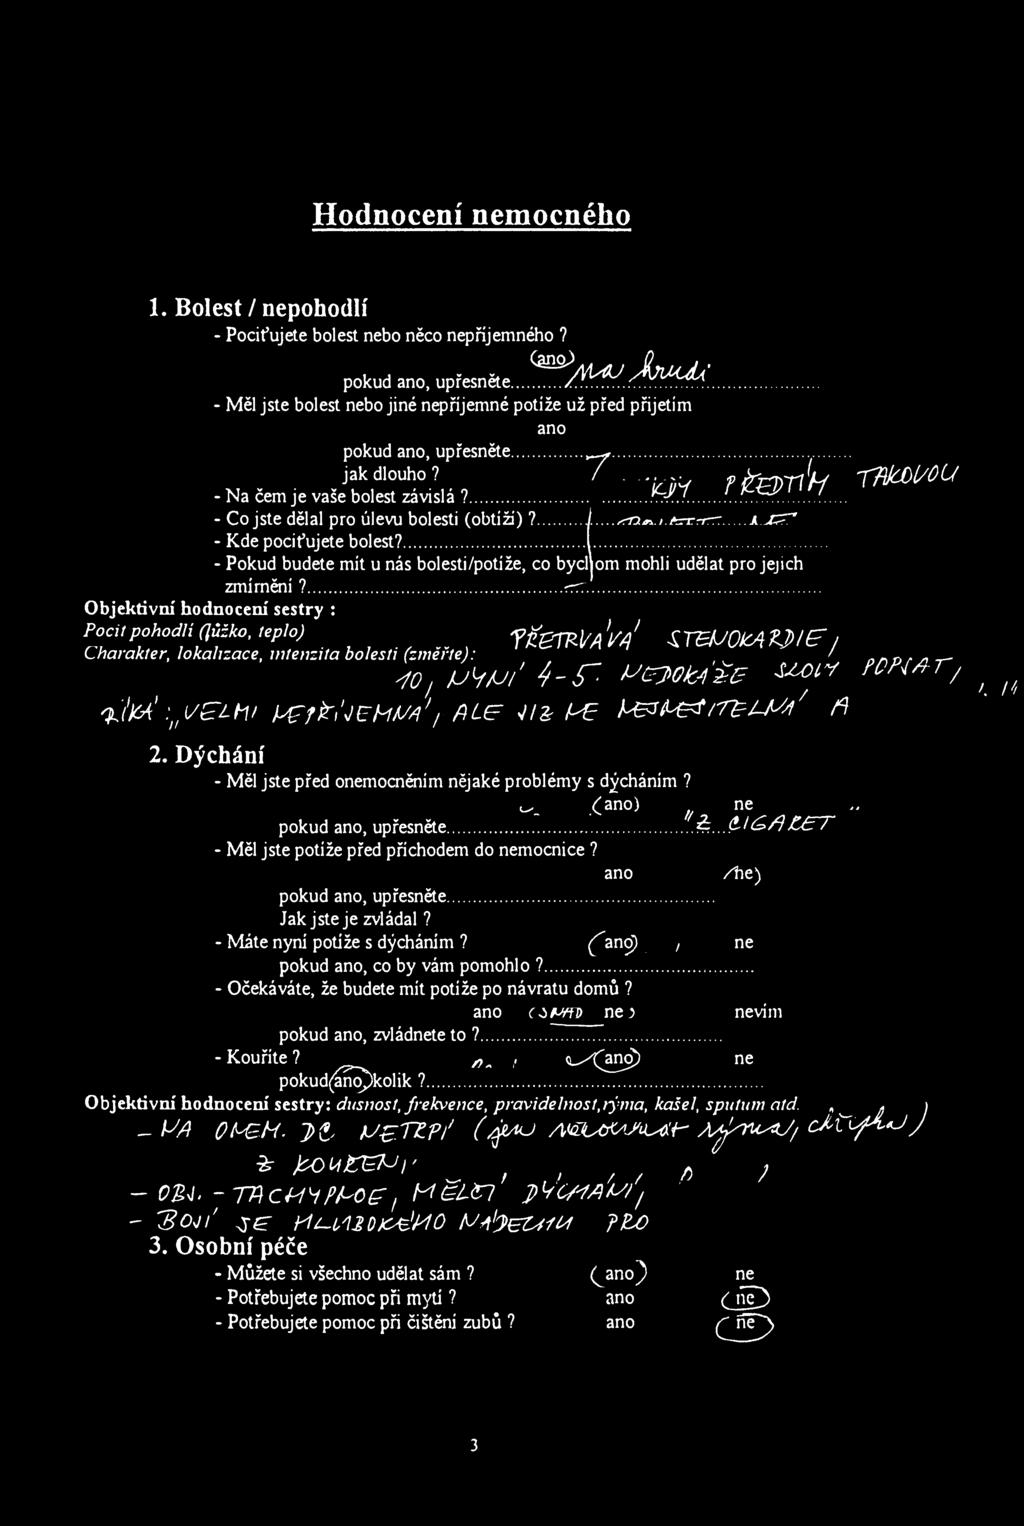 Hodnocení nemocného
1. Bolest / nepohodlí
- Pociťujete bolest nebo něco nepříjemného ?
ano
pokud ano, upřesněte.......... na hrudi
- Měl jste bolest nebo jiné nepříjemné potíže už před přijetím
ano
pokud ano, upřesněte
jak dlouho ?
- Na čem je vaše bolest závislá ? PŘEDTÍM TAKOVOU
- Co jste dělal pro úlevu bolesti (obtíží) ?
- Kde pociťujete bolest?
- Pokud budete mít u nás bolesti/potíže, co bychom mohli udělat pro jejich
zmírnění ?
Objektivní hodnocení sestry :
Pocit pohodlí (lůžko, teplo)
PŘETRVÁVÁ STENOKARDIE,
Charakter, lokalizace, intenzita bolesti (změřte):
10, NYNÍ 4-5. NEDOKÁŽE SLOVY POPSAT,
ŘÍKÁ: „VELMI NEPŘÍJEMNÁ, ALE JIŽ NE NESNESITELNÁ A
2. Dýchání
- Měl jste před onemocněním nějaké problémy s dýcháním ?
ano ne
pokud ano, upřesněte.......... "Z CIGARET"
- Měl jste potíže před příchodem do nemocnice ?
ano ne
pokud ano, upřesněte
Jak jste je zvládal ?
- Máte nyní potíže s dýcháním ? ano ne
pokud ano, co by vám pomohlo ?
- Očekáváte, že budete mít potíže po návratu domů ?
ano (SNAD ne) nevím
pokud ano, zvládnete to ?
- Kouříte ? ano ne
pokud ano, kolik ?
Objektivní hodnocení sestry: dusnost, frekvence, pravidelnost, rýma, kašel, sputum atd.
- NA ONEM. DC. NETRPÍ (jen rýma, chřipka)
Z KOUŘENÍ
- OBJ. - TACHYPNOE, MĚLKÉ DÝCHÁNÍ,
- BOJÍ SE HLUBOKÉHO NÁDECHU PRO
3. Osobní péče
- Můžete si všechno udělat sám ? ano ne
- Potřebujete pomoc při mytí ? ano ne
- Potřebujete pomoc při čištění zubů ? ano ne
3